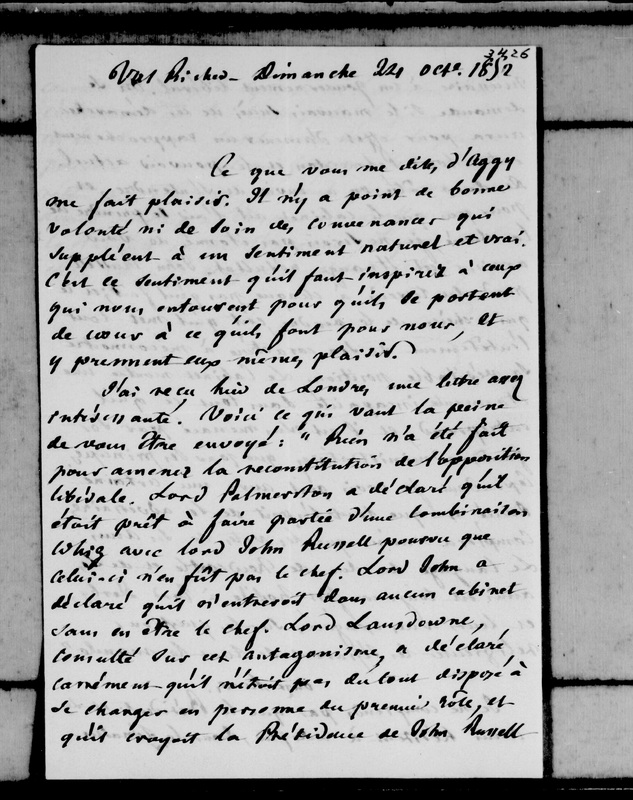 3426
Val Richer - Dimanche 24 Octe. 1852
Ce que vous me dites d'Aggy
me fait plaisir. Il n'y a point de bonne
volonté ni de soin des convenances qui
suppléent à un sentiment naturel et vrai.
C'est ce sentiment qu'il faut inspirer à ceux
qui nous entourent pour qu'ils se portent
de cœur à ce qu'ils font pour nous, et
y prennent eux mêmes plaisir.
J'ai reçu hier de Londres une lettre assez
intéressante. Voici ce qui vaut la peine
de vous être envoyé : " Rien n'a été fait
pour amener la reconstitution de l'opposition
libérale. Lord Palmerston a déclaré qu'il
était prêt à faire partie d'une combinaison
Whig avec lord John Russell pourvu que
celui-ci n'en fût pas le chef. Lord John a
déclaré qu'il n'entreroit dans aucun cabinet
sans en être le chef. Lord Lansdowne,
consulté sur cet antagonisme, a déclaré
carrément qu'il n'étoit pas du tout disposé à
se charger en personne du premier rôle, et
qu'il croyoit la Présidence de John Russell